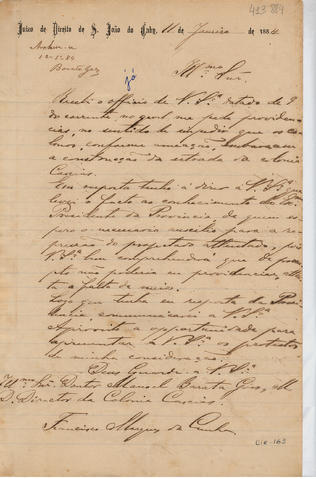 413 884
Juizo de Direito de S. João do Cahy, 11 de Janeiro de 1884
Archive-se
12-1-84
Barata Góes
Illmo Snr.
Recebi o officio de V. Sa. datado de 9
do corrente, no qual me pede providen-
cias, no sentido de impedir que os co-
lonos, conforme ameação, embaracem
a construcção da estrada da colonia
Caxias.
Em resposta tenho a dizer a V. Sa. que
levei o facto ao conhecimento do
Presidente da Provincia, de quem es-
pero o necessario auxilio para a re-
pressão do projectado attentado, pois
V. Sa. bem comprehenderá que de prom-
pto não poderia eu providenciar,
a falta de meios.
Logo que tenha eu resposta da Presi-
dencia communicarei a V. Sa.
Aproveito a opportunidade para
apresentar a V. Sa. os protestos
de minha consideração.
Deus Guarde a V. Sa.
Illmo Snr. Manoel Barata Góes, M.
D. Director da Colonia Caxias.
Francisco da Cunha